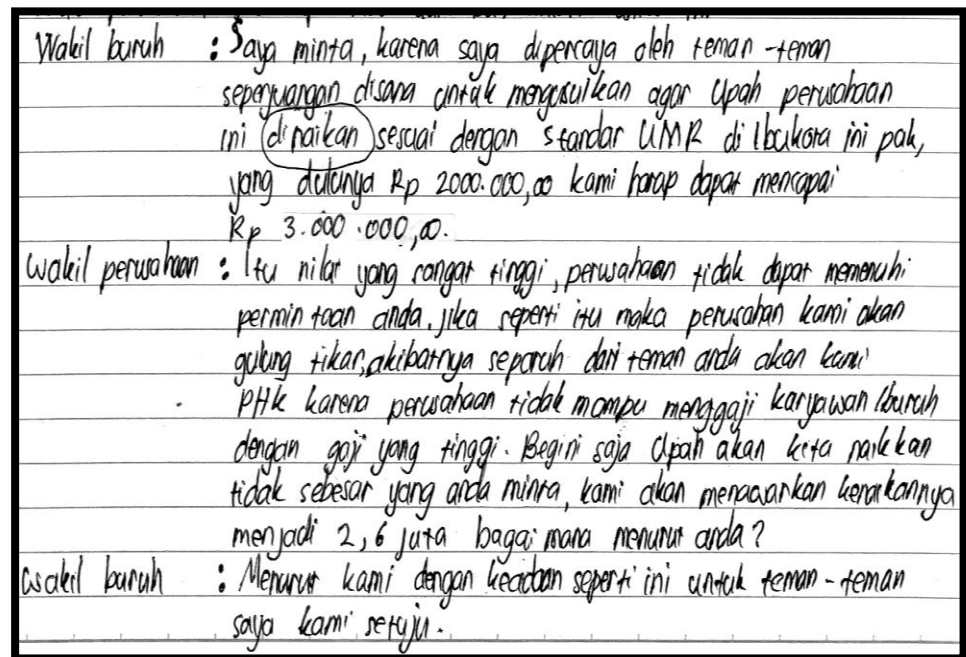 Wakil buruh : Saya minta, karena saya dipercaya oleh teman-teman
seperjuangan disana untuk mengusulkan agar Upah perusahaan
ini dinaikan sesuai dengan standar UMR di Ibukota ini pak,
yang dulunya Rp 2000.000,00 kami harap dapat mencapai
Rp 3.000.000,00.
Wakil perusahaan : Itu nilai yang sangat tinggi, perusahaan tidak dapat memenuhi
permintaan anda. jika seperti itu maka perusahan kami akan
gulung tikar, akibatnya separuh dari teman anda akan kami
PHK karena perusahaan tidak mampu menggaji karyawan/buruh
dengan gaji yang tinggi. Begini saja Upah akan kita naikkan
tidak sebesar yang anda minta, kami akan menawarkan kenaikannya
menjadi 2,6 juta bagaimana menurut anda?
Wakil buruh : Menurut kami dengan keadaan seperti ini untuk teman-teman
saya kami setuju.